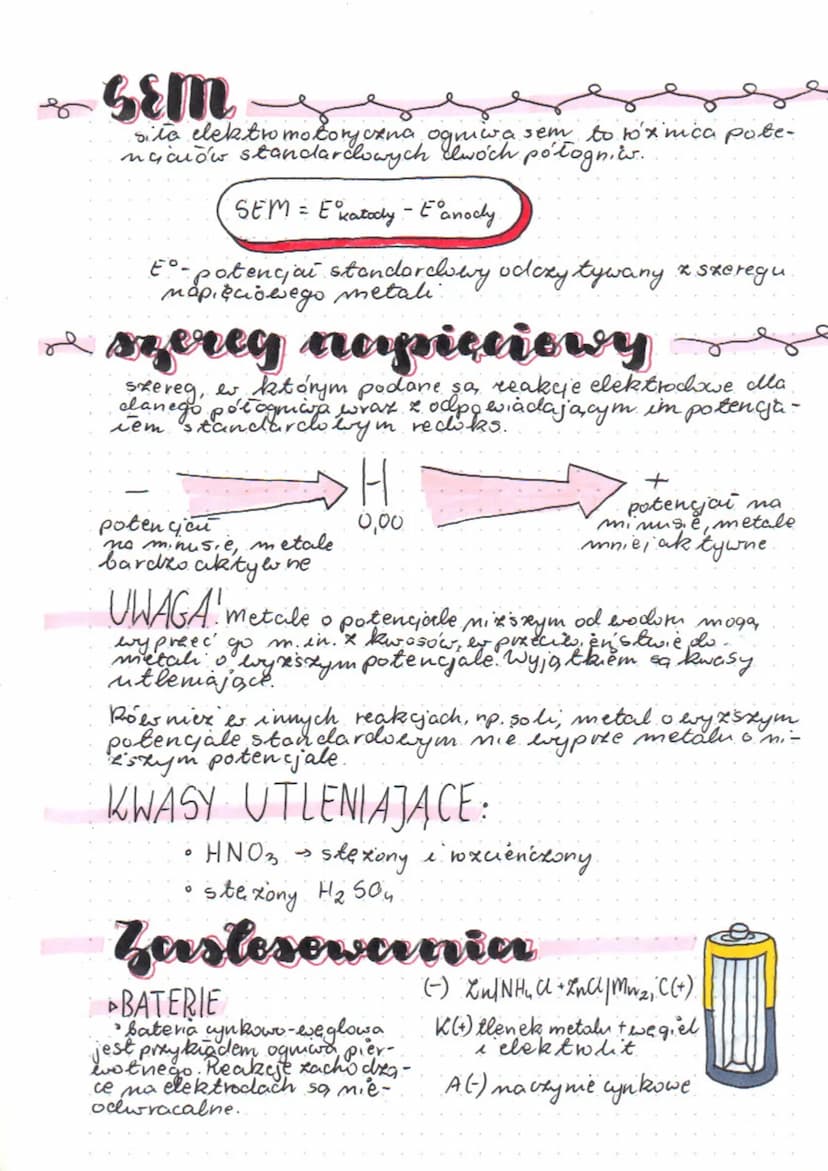 SEM
siła elektromotoryczna ogniwa sem to różnica pote-
ncjałów standardowych dwóch półogniw.
SEM = E°katody - E°anody
E° - potencjał standardowy odczytywany z szeregu
napięciowego metali
szereg napięciowy
szereg, w którym podane są reakcje elektrodowe dla
danego półogniwa wraz z odpowiadającym im potencja-
łem standardowym redoks.
- H +
0,00
potencjał
na minusie, metale
bardzo aktywne
potencjał na
minusie, metale
mniej aktywne
UWAGA! Metale o potencjale niższym od wodoru mogą
wyprzeć go m.in. z kwasów, w przeciwieństwie do
metali o wyższym potencjale. Wyjątkiem są kwasy
utleniające.
Również w innych reakcjach, np. soli, metal o wyższym
potencjale standardowym nie wyprze metalu o ni-
ższym potencjale.
KWASY UTLENIAJĄCE:
• HNO3 → stężony i rozcieńczony
• stężony H2SO4
Zastosowania
▹BATERIE
• bateria cynkowo-węglowa
jest przykładem ogniwa pier-
wotnego. Reakcje zachodzą-
ce na elektrodach są nie-
odwracalne.
(-) Zn|NH4Cl+ZnCl|Mn2, C(+)
K(+) tlenek metalu + węgiel
i elektrolit
A(-) naczynie cynkowe